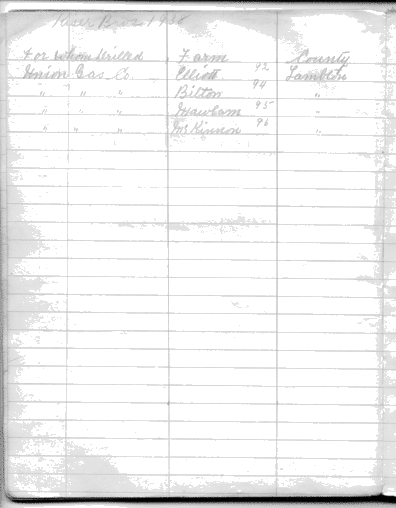 Kiser Bros. 1935
For whom Drilled Farm County
Union Gas Co. Elliott 92 Lambton
" " " Bilton 94 "
" " " Mawlam 95 "
" " " McKinnon 96 "